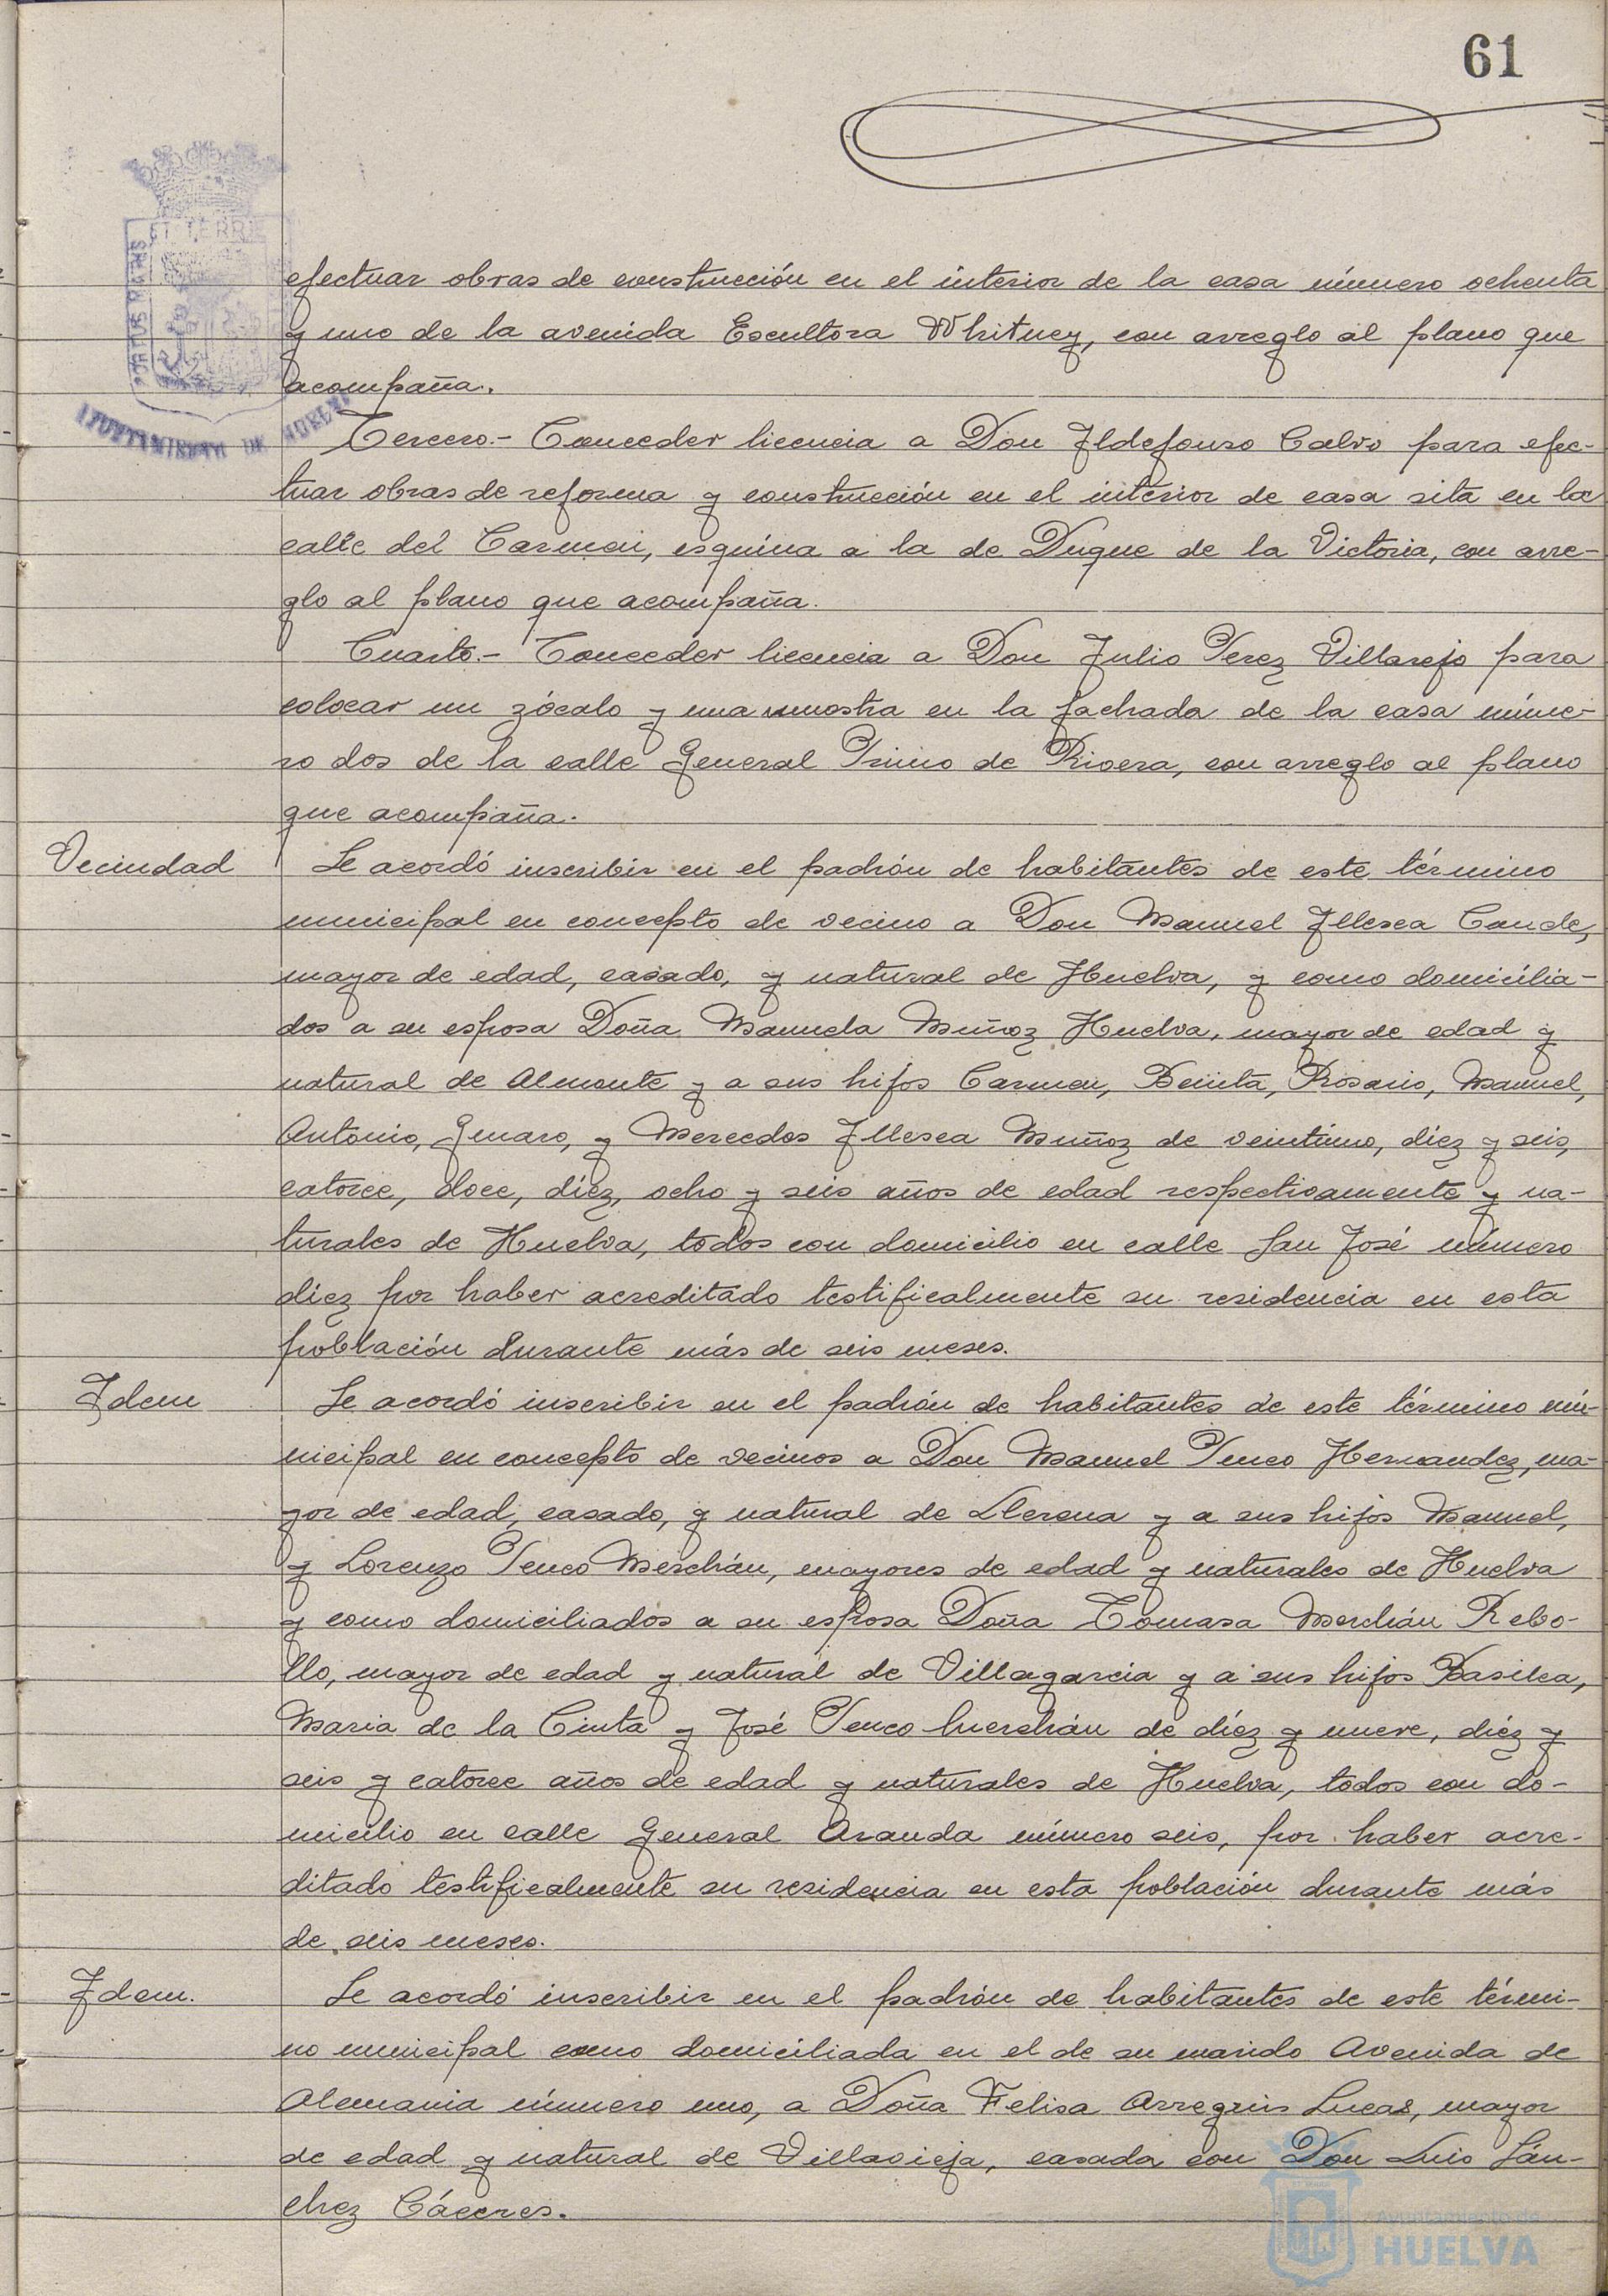 61
ET TERRÆ
PORTUS MARIS
AYUNTAMIENTO DE HUELVA
efectuar obras de construcción en el interior de la casa número ochenta
y uno de la avenida Escultora Whitney, con arreglo al plano que
acompaña.
Tercero.- Conceder licencia a Don Ildefonso Calvo para efec-
tuar obras de reforma y construcción en el interior de casa sita en la
calle del Carmen, esquina a la de Duque de la Victoria, con arre-
glo al plano que acompaña.
Cuarto.- Conceder licencia a Don Julio Perez Villarejo para
colocar un zócalo y una muestra en la fachada de la casa núme-
ro dos de la calle General Primo de Rivera, con arreglo al plano
que acompaña.
Vecindad
Se acordó inscribir en el padrón de habitantes de este término
municipal en concepto de vecino a Don Manuel Illesca Conde,
mayor de edad, casado, y natural de Huelva, y como domicilia-
dos a su esposa Doña Manuela Muñoz Huelva, mayor de edad y
natural de Almonte y a sus hijos Carmen, Benita, Rosario, Manuel,
Antonio, Genaro, y Mercedes Illesca Muñoz de veintiuno, diez y seis,
catorce, doce, diez, ocho y seis años de edad respectivamente y na-
turales de Huelva, todos con domicilio en calle San José número
diez por haber acreditado testificalmente su residencia en esta
población durante más de seis meses.
Idem
Se acordó inscribir en el padrón de habitantes de este término mu-
nicipal en concepto de vecinos a Don Manuel Penco Hernandez, ma-
yor de edad, casado, y natural de Llerena y a sus hijos Manuel,
y Lorenzo Penco Merchán, mayores de edad y naturales de Huelva
y como domiciliados a su esposa Doña Tomasa Merchán Rebo-
llo, mayor de edad y natural de Villagarcia y a sus hijos Basilea,
Maria de la Cinta y José Penco Merchán de diez y nueve, diez y
seis y catorce años de edad y naturales de Huelva, todos con do-
micilio en calle General Aranda número seis, por haber acre-
ditado testificalmente su residencia en esta población durante más
de seis meses.
Idem.
Se acordó inscribir en el padrón de habitantes de este térmi-
no municipal como domiciliada en el de su marido Avenida de
Alemania número uno, a Doña Felisa Arreguis Lucas, mayor
de edad y natural de Villavieja, casada con Don Luis Sán-
chez Cáceres.
Ayuntamiento de
HUELVA